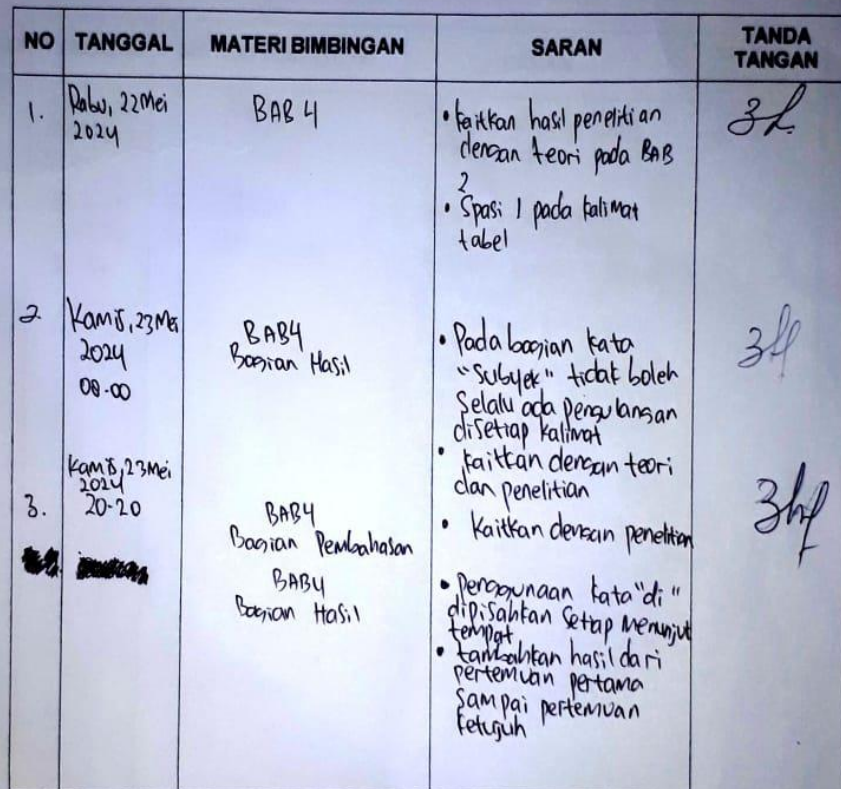 NO TANGGAL MATERI BIMBINGAN SARAN TANDA TANGAN
1. Rabu, 22 Mei
2024
BAB 4
• kaitkan hasil penelitian
dengan teori pada BAB
2
• Spasi 1 pada kalimat
tabel
2. Kamis, 23 Mei
2024
08-00
BAB4
Bagian Hasil
• Pada bagian kata
"Subyek" tidak boleh
Selalu ada pengulangan
disetiap kalimat
• kaitkan dengan teori
dan penelitian
3. Kamis, 23 Mei
2024
20-20
BAB4
Bagian Pembahasan
• Kaitkan dengan penelitian
BAB4
Bagian Hasil
• Penggunaan kata "di"
dipisahkan Setiap menunjut
tempat
• tambahkan hasil dari
pertemuan pertama
sampai pertemuan
ketujuh